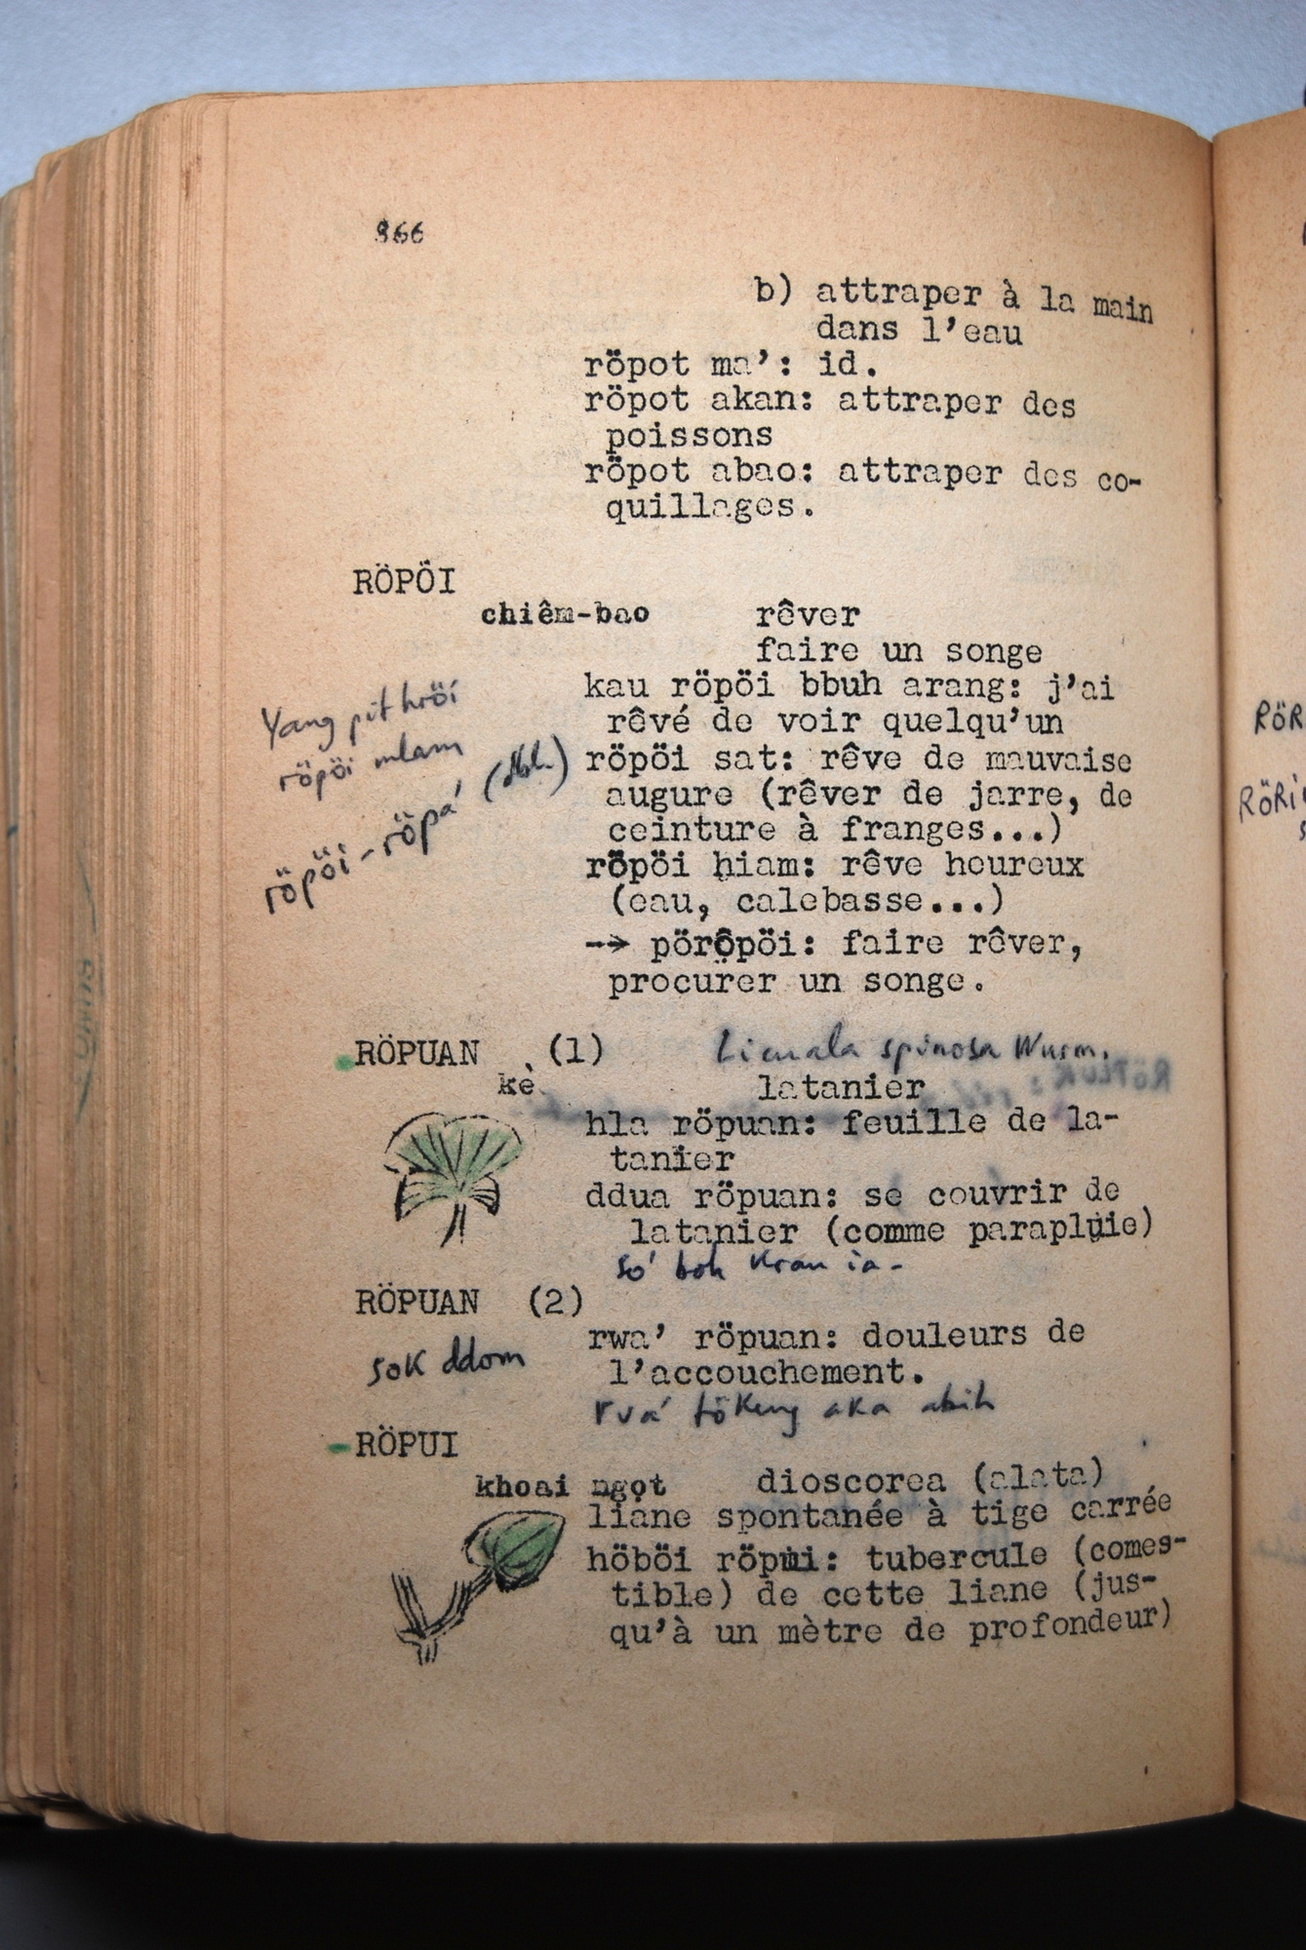 966
b) attraper à la main
dans l'eau
röpot ma': id.
röpot akan: attraper des
poissons
röpot abao: attraper des co-
quillages.
RÖPÖI
chiêm-bao rêver
faire un songe
kau röpöi bbuh arang: j'ai
rêvé de voir quelqu'un
Yang pit hröi
röpöi mlam
röpöi-röpá
röpöi sat: rêve de mauvaise
augure (rêver de jarre, de
ceinture à franges...)
röpöi hiam: rêve heureux
(eau, calebasse...)
--> pöröpöi: faire rêver,
procurer un songe.
RÖPUAN (1) Licuala spinosa Wurm.
kè latanier
hla röpuan: feuille de la-
tanier
ddua röpuan: se couvrir de
latanier (comme parapluie)
só boh kran ia-
RÖPUAN (2)
rwa' röpuan: douleurs de
l'accouchement.
sok ddom
aka abih
RÖPUI
khoai ngọt dioscorea (alata)
liane spontanée à tige carrée
höböi röpui: tubercule (comes-
tible) de cette liane (jus-
qu'à un mètre de profondeur)
RÖR